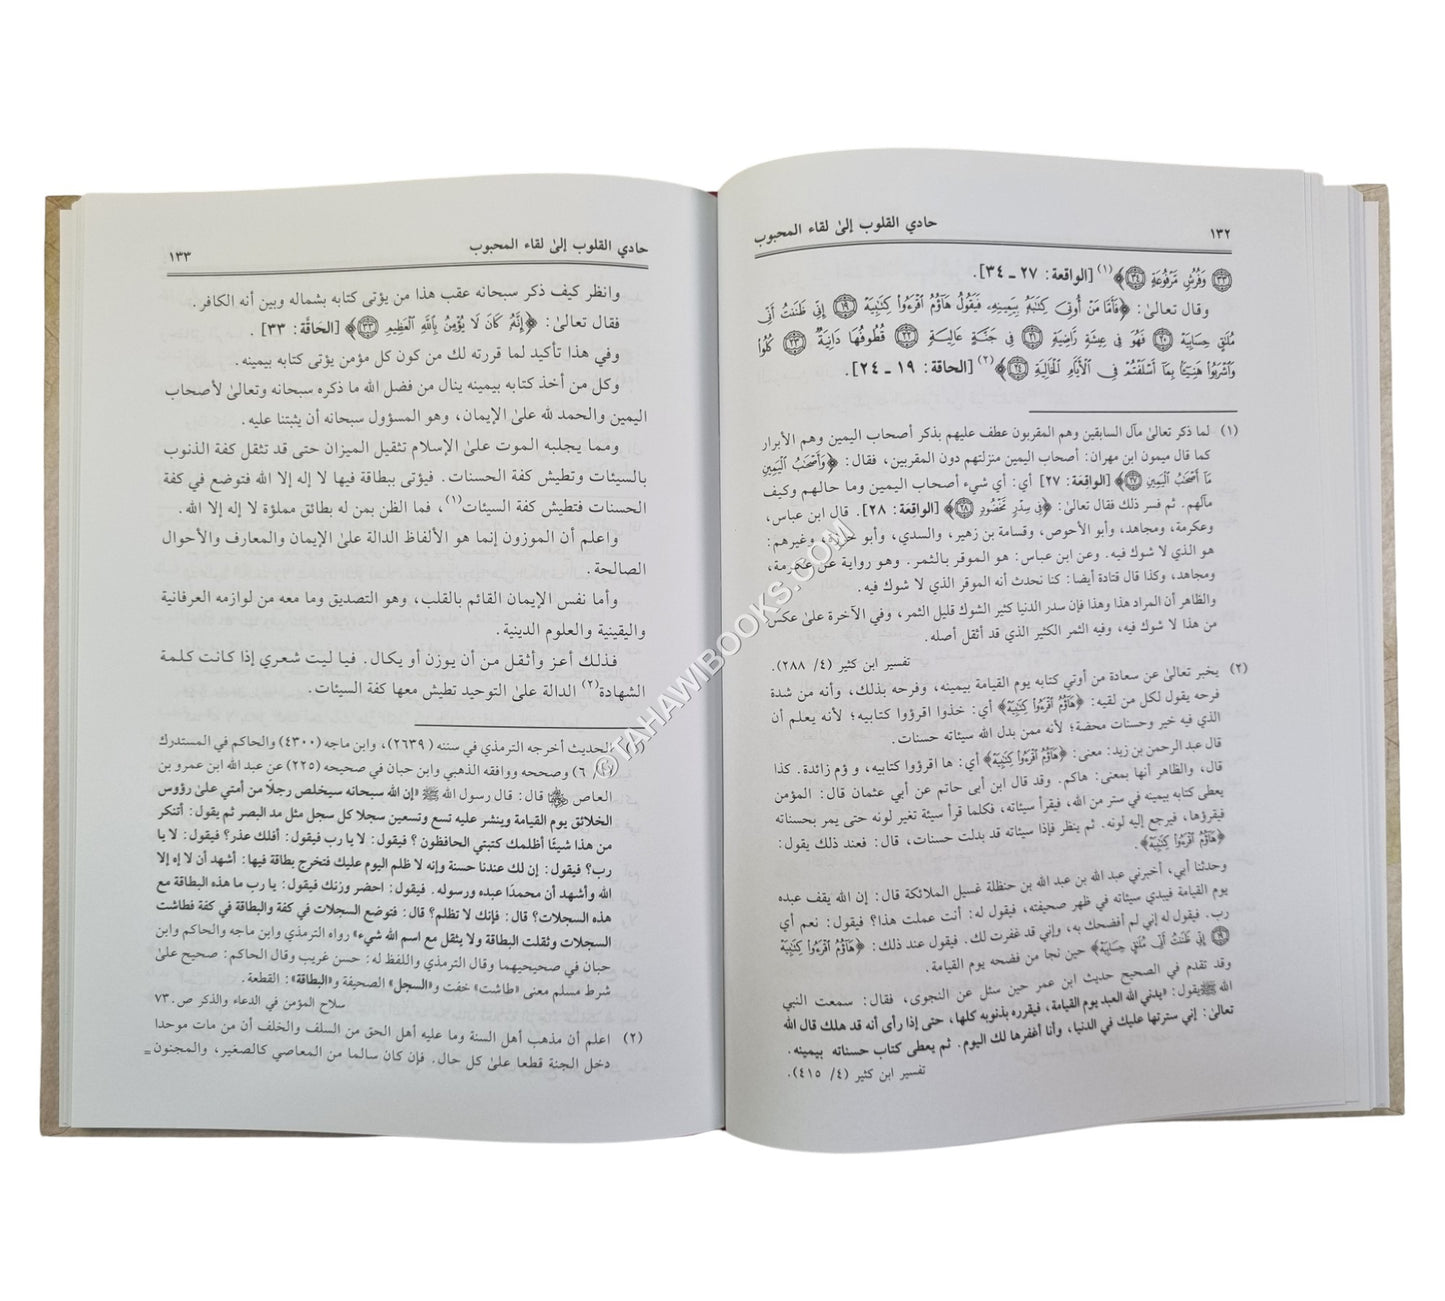 ١٣٢ حادي القلوب إلى لقاء المحبوب
﴿٣٣﴾ وَفُرُشٍ مَّرْفُوعَةٍ ﴿٣٤﴾﴾(١) [الواقعة: ٢٧ ـ ٣٤].
وقال تعالى: ﴿فَأَمَّا مَنْ أُوتِىَ كِتَٰبَهُۥ بِيَمِينِهِۦ فَيَقُولُ هَآؤُمُ ٱقْرَءُوا۟ كِتَٰبِيَهْ ﴿١٩﴾ إِنِّى ظَنَنتُ أَنِّى
مُلَٰقٍ حِسَابِيَهْ ﴿٢٠﴾ فَهُوَ فِى عِيشَةٍ رَّاضِيَةٍ ﴿٢١﴾ فِى جَنَّةٍ عَالِيَةٍ ﴿٢٢﴾ قُطُوفُهَا دَانِيَةٌ ﴿٢٣﴾ كُلُوا۟
وَٱشْرَبُوا۟ هَنِيٓـًٔۢا بِمَآ أَسْلَفْتُمْ فِى ٱلْأَيَّامِ ٱلْخَالِيَةِ ﴿٢٤﴾﴾(٢) [الحاقة: ١٩ ـ ٢٤].
(١) لما ذكر تعالى مآل السابقين وهم المقربون عطف عليهم بذكر أصحاب اليمين وهم الأبرار
كما قال ميمون ابن مهران: أصحاب اليمين منزلتهم دون المقربين، فقال: ﴿وَأَصْحَٰبُ ٱلْيَمِينِ
مَآ أَصْحَٰبُ ٱلْيَمِينِ ﴿٢٧﴾﴾ [الواقِعَة: ٢٧] أي: أي شيء أصحاب اليمين وما حالهم وكيف
مآلهم. ثم فسر ذلك فقال تعالى: ﴿فِى سِدْرٍ مَّخْضُودٍ ﴿٢٨﴾﴾ [الواقِعَة: ٢٨]. قال ابن عباس،
وعكرمة، ومجاهد، وأبو الأحوص، وقسامة بن زهير، والسدي، وأبو حرزة، وغيرهم:
هو الذي لا شوك فيه. وعن ابن عباس: هو الموقر بالثمر. وهو رواية عن عكرمة،
ومجاهد، وكذا قال قتادة أيضا: كنا نحدث أنه الموقر الذي لا شوك فيه.
والظاهر أن المراد هذا وهذا فإن سدر الدنيا كثير الشوك قليل الثمر، وفي الآخرة على عكس
من هذا لا شوك فيه، وفيه الثمر الكثير الذي قد أثقل أصله.
تفسير ابن كثير (٤/ ٢٨٨).
(٢) يخبر تعالى عن سعادة من أوتي كتابه يوم القيامة بيمينه، وفرحه بذلك، وأنه من شدة
فرحه يقول لكل من لقيه: ﴿هَآؤُمُ ٱقْرَءُوا۟ كِتَٰبِيَهْ﴾ أي: خذوا اقرؤوا كتابيه؛ لأنه يعلم أن
الذي فيه خير وحسنات محضة؛ لأنه ممن بدل الله سيئاته حسنات.
قال عبد الرحمن بن زيد: معنى: ﴿هَآؤُمُ ٱقْرَءُوا۟ كِتَٰبِيَهْ﴾ أي: ها اقرؤوا كتابيه، و ؤم زائدة. كذا
قال، والظاهر أنها بمعنى: هاكم. وقد قال ابن أبى حاتم عن أبي عثمان قال: المؤمن
يعطى كتابه بيمينه في ستر من الله، فيقرأ سيئاته، فكلما قرأ سيئة تغير لونه حتى يمر بحسناته
فيقرؤها، فيرجع إليه لونه. ثم ينظر فإذا سيئاته قد بدلت حسنات، قال: فعند ذلك يقول:
﴿هَآؤُمُ ٱقْرَءُوا۟ كِتَٰبِيَهْ﴾.
وحدثنا أبي، أخبرني عبد الله بن عبد الله بن حنظلة غسيل الملائكة قال: إن الله يقف عبده
يوم القيامة فيبدي سيئاته في ظهر صحيفته، فيقول له: أنت عملت هذا؟ فيقول: نعم أي
رب. فيقول له إني لم أفضحك به، وإني قد غفرت لك. فيقول عند ذلك: ﴿هَآؤُمُ ٱقْرَءُوا۟ كِتَٰبِيَهْ
﴿١٩﴾ إِنِّى ظَنَنتُ أَنِّى مُلَٰقٍ حِسَابِيَهْ﴾ حين نجا من فضحه يوم القيامة.
وقد تقدم في الصحيح حديث ابن عمر حين سئل عن النجوى، فقال: سمعت النبي
الله ﷺ يقول: «يدني الله العبد يوم القيامة، فيقرره بذنوبه كلها، حتى إذا رأى أنه قد هلك قال الله
تعالى: إني سترتها عليك في الدنيا، وأنا أغفرها لك اليوم. ثم يعطى كتاب حسناته بيمينه.
تفسير ابن كثير (٤/ ٤١٥).
حادي القلوب إلى لقاء المحبوب ١٣٣
وانظر كيف ذكر سبحانه عقب هذا من يؤتى كتابه بشماله وبين أنه الكافر.
فقال تعالى: ﴿إِنَّهُۥ كَانَ لَا يُؤْمِنُ بِٱللَّهِ ٱلْعَظِيمِ ﴿٣٣﴾﴾ [الحَاقَّة: ٣٣].
وفي هذا تأكيد لما قررته لك من كون كل مؤمن يؤتى كتابه بيمينه.
وكل من أخذ كتابه بيمينه ينال من فضل الله ما ذكره سبحانه وتعالى لأصحاب
اليمين والحمد لله على الإيمان، وهو المسؤول سبحانه أن يثبتنا عليه.
ومما يجلبه الموت على الإسلام تثقيل الميزان حتى قد تثقل كفة الذنوب
بالسيئات وتطيش كفة الحسنات. فيؤتى ببطاقة فيها لا إله إلا الله فتوضع في كفة
الحسنات فتطيش كفة السيئات(١)، فما الظن بمن له بطائق مملؤة لا إله إلا الله.
واعلم أن الموزون إنما هو الألفاظ الدالة على الإيمان والمعارف والأحوال
الصالحة.
وأما نفس الإيمان القائم بالقلب، وهو التصديق وما معه من لوازمه العرفانية
واليقينية والعلوم الدينية.
فذلك أعز وأثقل من أن يوزن أو يكال. فيا ليت شعري إذا كانت كلمة
الشهادة(٢) الدالة على التوحيد تطيش معها كفة السيئات.
الحديث أخرجه الترمذي في سننه (٢٦٣٩)، وابن ماجه (٤٣٠٠) والحاكم في المستدرك
٦) وصححه ووافقه الذهبي وابن حبان في صحيحه (٢٢٥) عن عبد الله ابن عمرو بن
العاص رضي الله عنه قال: قال رسول الله ﷺ «إن الله سبحانه سيخلص رجلًا من أمتي على رؤوس
الخلائق يوم القيامة وينشر عليه تسع وتسعين سجلا كل سجل مثل مد البصر ثم يقول: أتنكر
من هذا شيئًا أظلمك كتبتي الحافظون؟ فيقول: لا يا رب فيقول: أفلك عذر؟ فيقول: لا يا
رب؟ فيقول: إن لك عندنا حسنة وإنه لا ظلم اليوم عليك فتخرج بطاقة فيها: أشهد أن لا إله إلا
الله وأشهد أن محمدًا عبده ورسوله. فيقول: احضر وزنك فيقول: يا رب ما هذه البطاقة مع
هذه السجلات؟ قال: فإنك لا تظلم؟ قال: فتوضع السجلات في كفة والبطاقة في كفة فطاشت
السجلات وثقلت البطاقة ولا يثقل مع اسم الله شيء» رواه الترمذي وابن ماجه والحاكم وابن
حبان في صحيحيهما وقال الترمذي واللفظ له: حسن غريب وقال الحاكم: صحيح على
شرط مسلم معنى «طاشت» خفت و«السجل» الصحيفة و«البطاقة»: القطعة.
سلاح المؤمن في الدعاء والذكر ص. ٧٣
(٢) اعلم أن مذهب أهل السنة وما عليه أهل الحق من السلف والخلف أن من مات موحدا
دخل الجنة قطعا على كل حال. فإن كان سالما من المعاصي كالصغير، والمجنون =
©TAHAWIBOOKS.COM